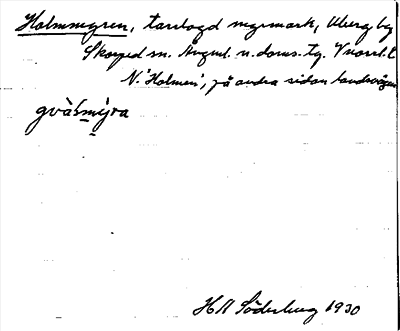 Holmmyren, torrlagd myrmark, Åberg by
Skorped sn. Ångml. n. doms. tg. V norr t.
N. 'Holmen', på andra sidan landsvägen
gvàsmy̆ra
H R Söderberg 1930